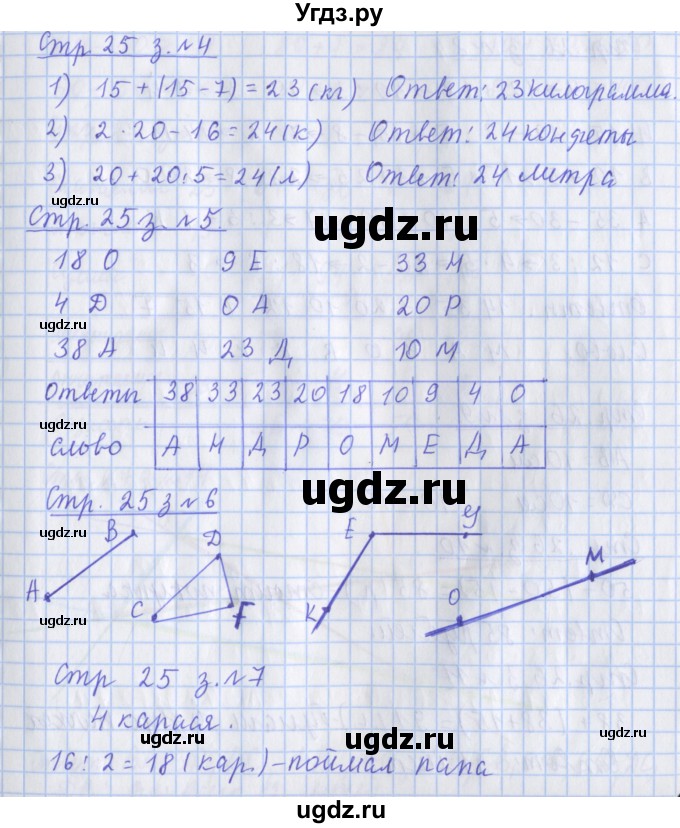 Угдз.ру
Стр. 25 з. №4
1) 15 + (15 - 7) = 23 (кг) Ответ: 23 килограмма.
2) 2 · 20 - 16 = 24 (к) Ответ: 24 конфеты
3) 20 + 20 : 5 = 24 (л) Ответ: 24 литра
ugdz.ru
Стр. 25 з. №5.
ugdz.ru
18 О 9 Е 33 Н
4 Д 0 А 20 Р
ugdz.ru
38 А 23 Д 10 М
ugdz.ru
Ответы 38 33 23 20 18 10 9 4 0
ugdz.ru
Слово А Н Д Р О М Е Д А
ugdz.ru
Стр. 25 з №6
ugdz.ru
В D Е У М
А С F К О
ugdz.ru
ugdz.ru
Стр 25 з. №7
4 карася.
ugdz.ru
ugdz.ru
16 : 2 = 18 (кар.) - поймал папа
ugdz.ru
ugdz.ru